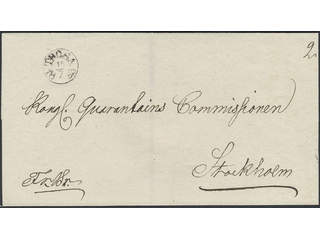 2.
Kongl. Quarantains Commissionen
Stockholm
Fr. Br.